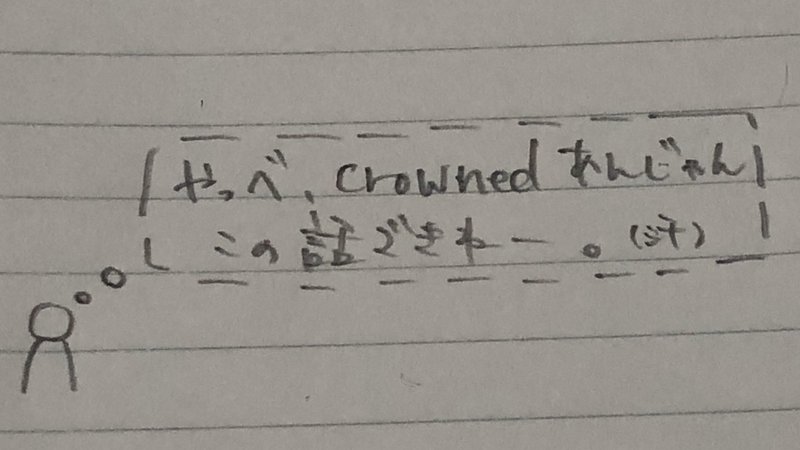 やっべ、crowned あんじゃん
この話できねー。(汗)